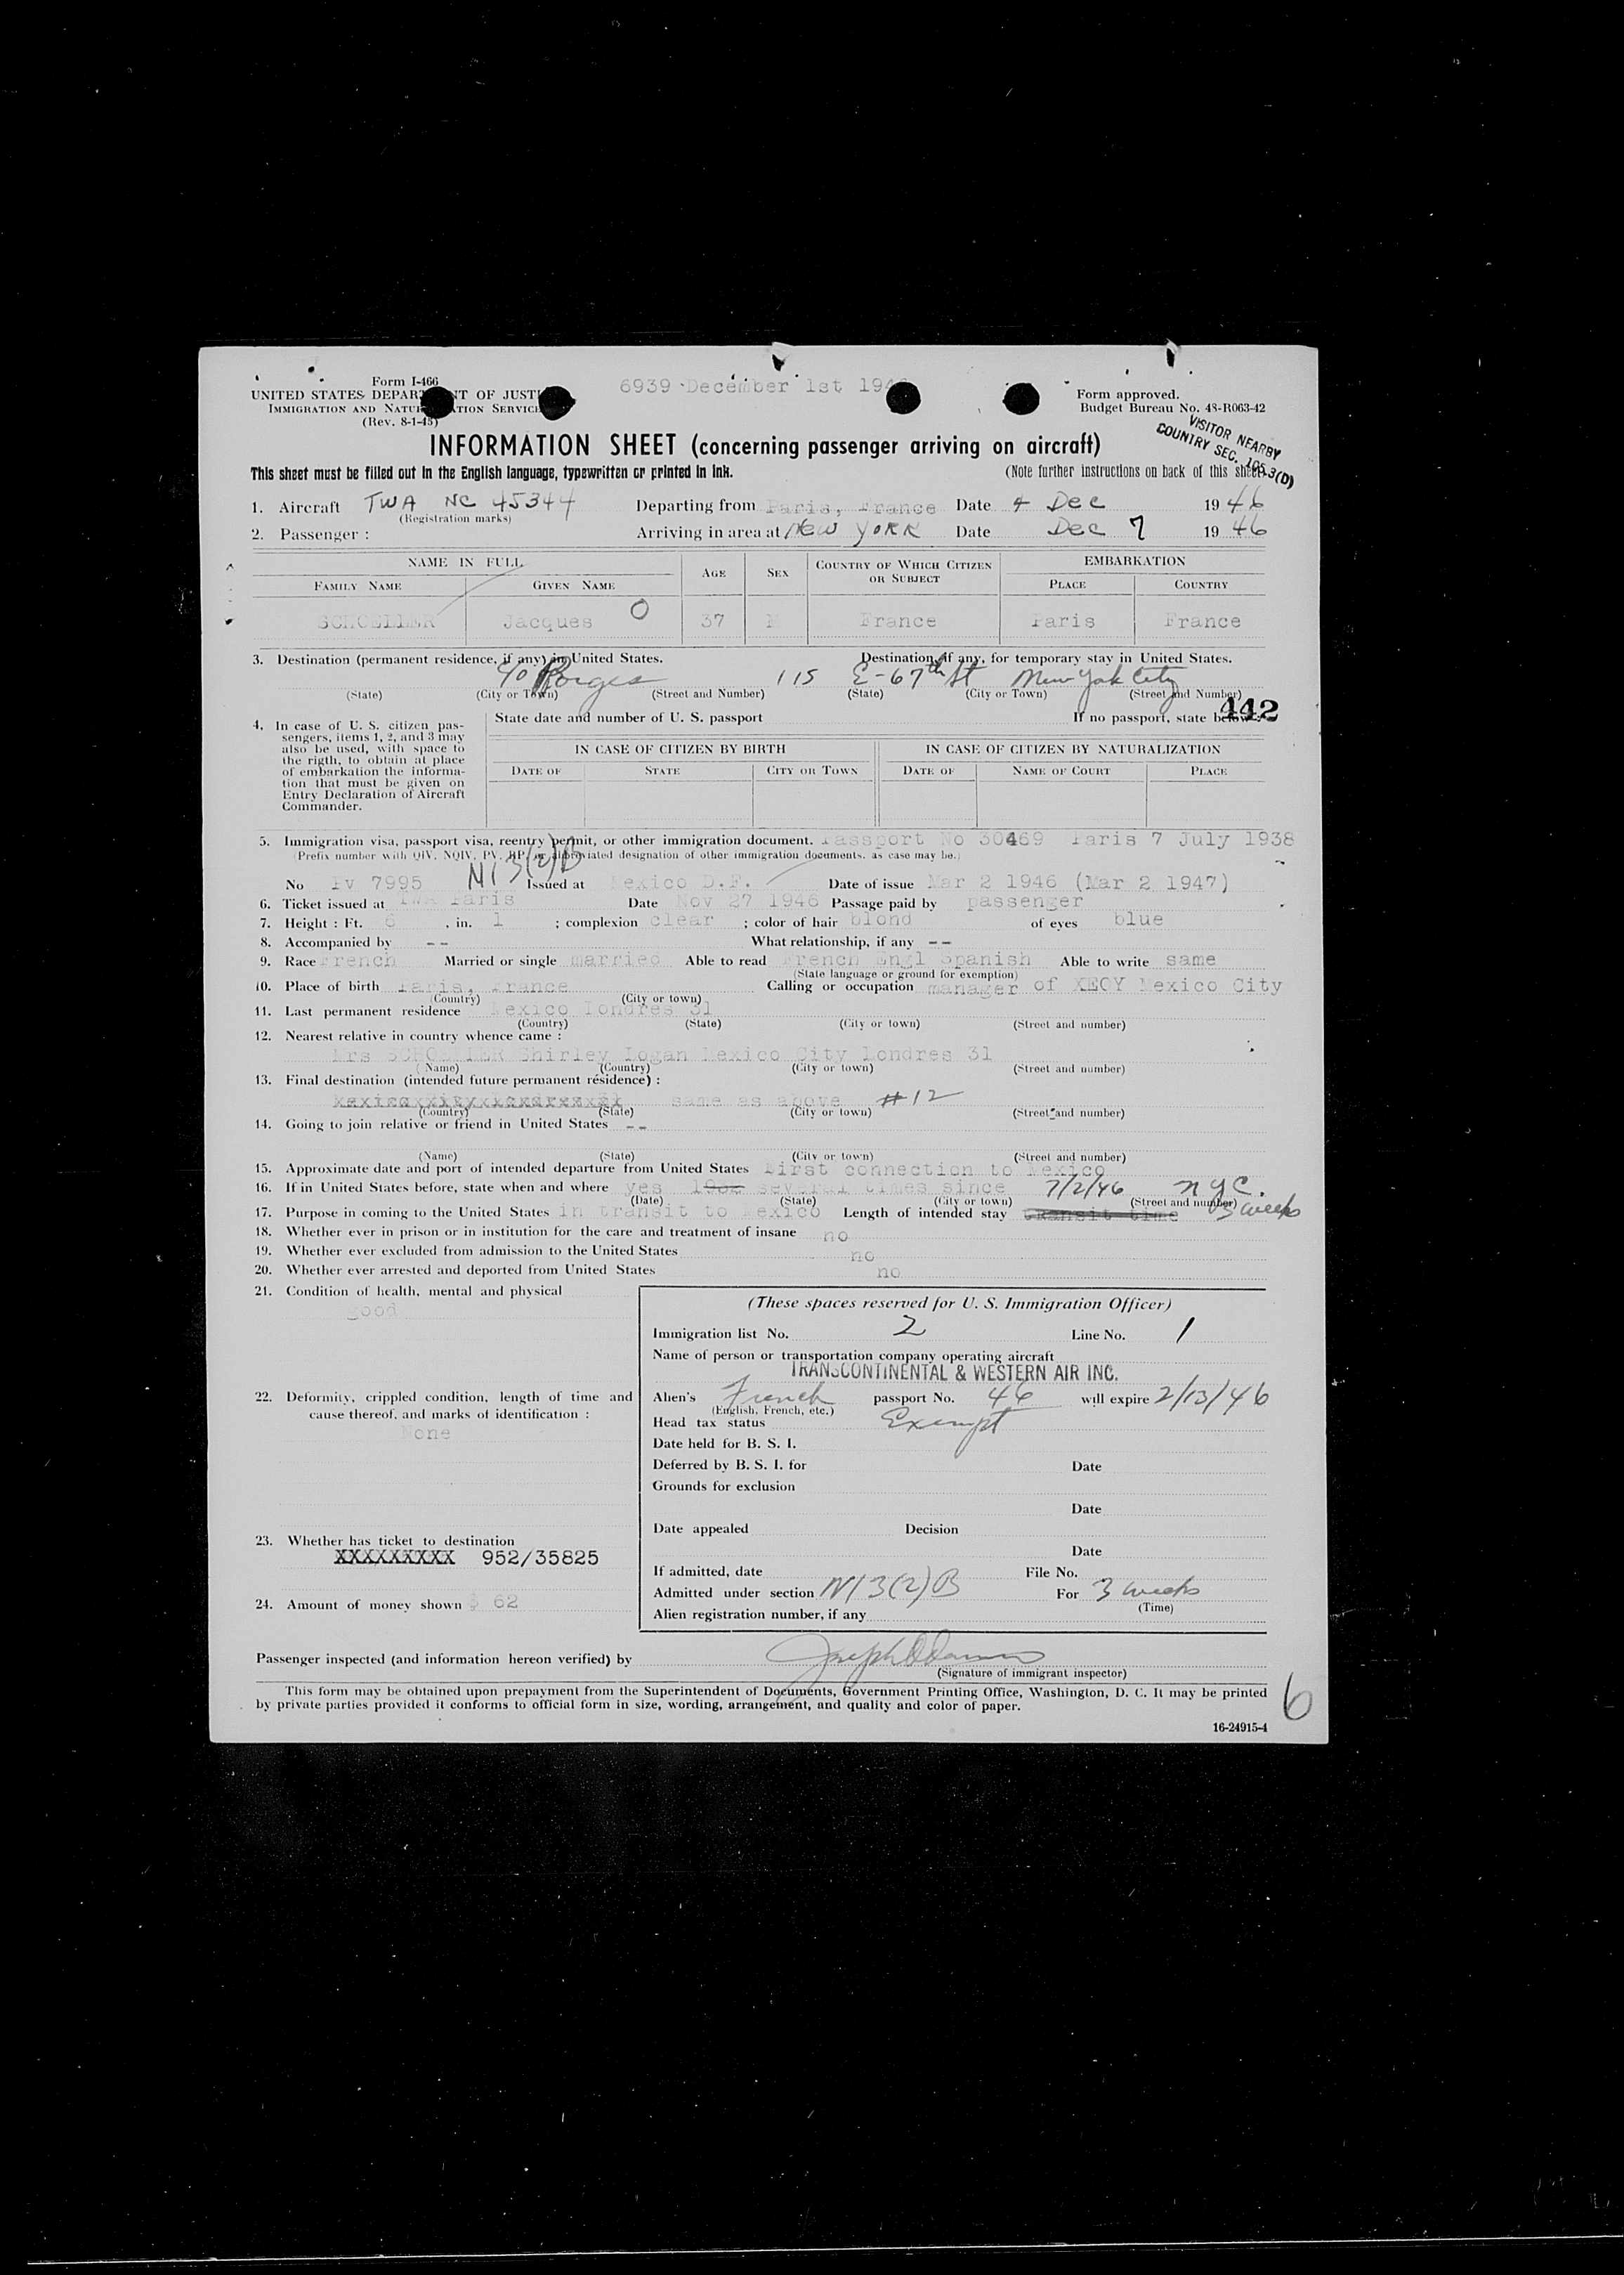 Form I-466
UNITED STATES DEPAR NT OF JUST
IMMIGRATION AND NATUR ATION SERVICE
(Rev. 8-1-45)
6939 December 1st 194
Form approved.
Budget Bureau No. 43-R063-42
VISITOR NEARBY
COUNTRY SEC. 105.3(D)
INFORMATION SHEET (concerning passenger arriving on aircraft)
This sheet must be filled out in the English language, typewritten or printed in ink.
(Note further instructions on back of this sheet.
1. Aircraft TWA NC 45344 Departing from Paris, France Date 4 Dec 1946
(Registration marks)
2. Passenger : Arriving in area at New YORK Date Dec 7 1946
NAME IN FULL AGE SEX COUNTRY OF WHICH CITIZEN OR SUBJECT EMBARKATION
FAMILY NAME GIVEN NAME PLACE COUNTRY
SCHOELLER Jacques O 37 M France Paris France
3. Destination (permanent residence, if any) in United States. Destination, if any, for temporary stay in United States.
c/o Porges 115 E-67th St New York City
(State) (City or Town) (Street and Number) (State) (City or Town) (Street and Number)
442
4. In case of U. S. citizen pas-
sengers, items 1, 2, and 3 may
also be used, with space to
the rigth, to obtain at place
of embarkation the informa-
tion that must be given on
Entry Declaration of Aircraft
Commander.
State date and number of U. S. passport If no passport, state below :
IN CASE OF CITIZEN BY BIRTH IN CASE OF CITIZEN BY NATURALIZATION
DATE OF STATE CITY OR TOWN DATE OF NAME OF COURT PLACE
5. Immigration visa, passport visa, reentry permit, or other immigration document. Passport No 30469 Paris 7 July 1938
(Prefix number with QIV, NQIV, PV, RP, or abbreviated designation of other immigration documents, as case may be.)
N13(2)B
No PV 7995 Issued at Mexico D.F. Date of issue Mar 2 1946 (Mar 2 1947)
6. Ticket issued at TWA Paris Date Nov 27 1946 Passage paid by passenger
7. Height : Ft. 6 , in. 1 ; complexion clear ; color of hair blond of eyes blue
8. Accompanied by -- What relationship, if any --
9. Race French Married or single married Able to read French Engl Spanish Able to write same
(State language or ground for exemption)
10. Place of birth Paris, France Calling or occupation manager of XEOY Mexico City
(Country) (City or town)
11. Last permanent residence Mexico Londres 31
(Country) (State) (City or town) (Street and number)
12. Nearest relative in country whence came :
Mrs SCHOELLER Shirley Logan Mexico City Londres 31
(Name) (Country) (City or town) (Street and number)
13. Final destination (intended future permanent résidence) :
same as above #12
(Country) (State) (City or town) (Street and number)
14. Going to join relative or friend in United States --
(Name) (State) (City or town) (Street and number)
15. Approximate date and port of intended departure from United States First connection to Mexico
16. If in United States before, state when and where yes several times since 7/2/46 NYC.
(Date) (State) (City or town) (Street and number)
17. Purpose in coming to the United States in transit to Mexico Length of intended stay transit time 3 weeks
18. Whether ever in prison or in institution for the care and treatment of insane no
19. Whether ever excluded from admission to the United States no
20. Whether ever arrested and deported from United States no
21. Condition of health, mental and physical
good
(These spaces reserved for U. S. Immigration Officer)
Immigration list No. 2 Line No. 1
Name of person or transportation company operating aircraft
TRANSCONTINENTAL & WESTERN AIR INC.
22. Deformity, crippled condition, length of time and
cause thereof, and marks of identification :
None
Alien's French passport No. 46 will expire 2/13/46
(English, French, etc.)
Head tax status Exempt
Date held for B. S. I.
Deferred by B. S. I. for Date
Grounds for exclusion
Date
Date appealed Decision
Date
23. Whether has ticket to destination
XXXXXXXXX 952/35825
If admitted, date File No.
Admitted under section N13(2)B For 3 weeks
(Time)
24. Amount of money shown $ 62
Alien registration number, if any
Passenger inspected (and information hereon verified) by
(Signature of immigrant inspector)
This form may be obtained upon prepayment from the Superintendent of Documents, Government Printing Office, Washington, D. C. It may be printed
by private parties provided it conforms to official form in size, wording, arrangement, and quality and color of paper.
6
16-24915-4